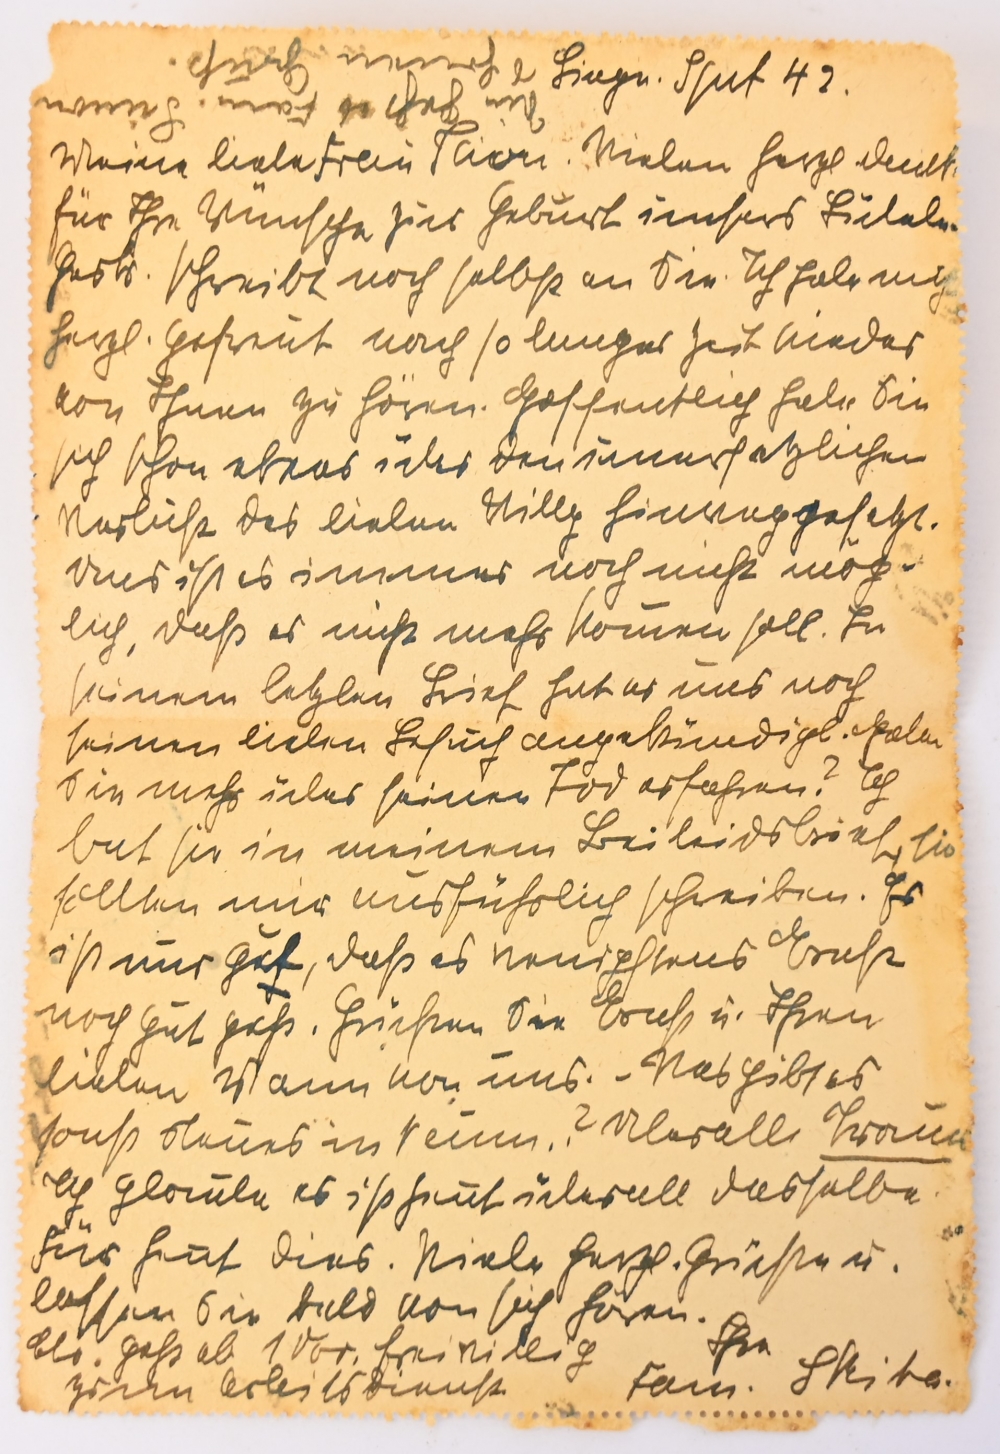 Liegn. Sept 42.
Meine liebe Frau Thien. Vielen herzl Dank
für Ihre Wünsche zur Geburt unsers Bübele.
Gert. schreibt noch selbst an Sie. Ich habe mich
herzl. gefreut nach so langer Zeit wieder
von Ihnen zu hören. Hoffentlich habe Sie
sich schon etwas über den unersetzlichen
Verlust des lieben Willy hinweggesetzt.
Uns ist es immer noch nicht mög-
lich, daß er nicht mehr kommen soll. In
seinem letzten Brief hat er uns noch
seinen lieben Besuch angekündigt. Haben
Sie mehr über seinen Tod erfahren? Ich
bat sie in meinem Beileidsbrief, sie
sollten mir ausführlich schreiben. Es
ist nur gut, daß es wenigstens Ernst
noch gut geht. Grüßen Sie Ernst u. Ihren
lieben Mann von uns. - Was gibt es
sonst Neues in? Überall Trauer
Ich glaube es ist heut überall dasselbe
Für heut dies. Viele herzl. Grüße u.
lassen Sie bald von sich hören.
geht ab 1 Nov. freiwillig Ihre
zum Arbeitsdienst Fam. Skiba.
Grüß
Fam.